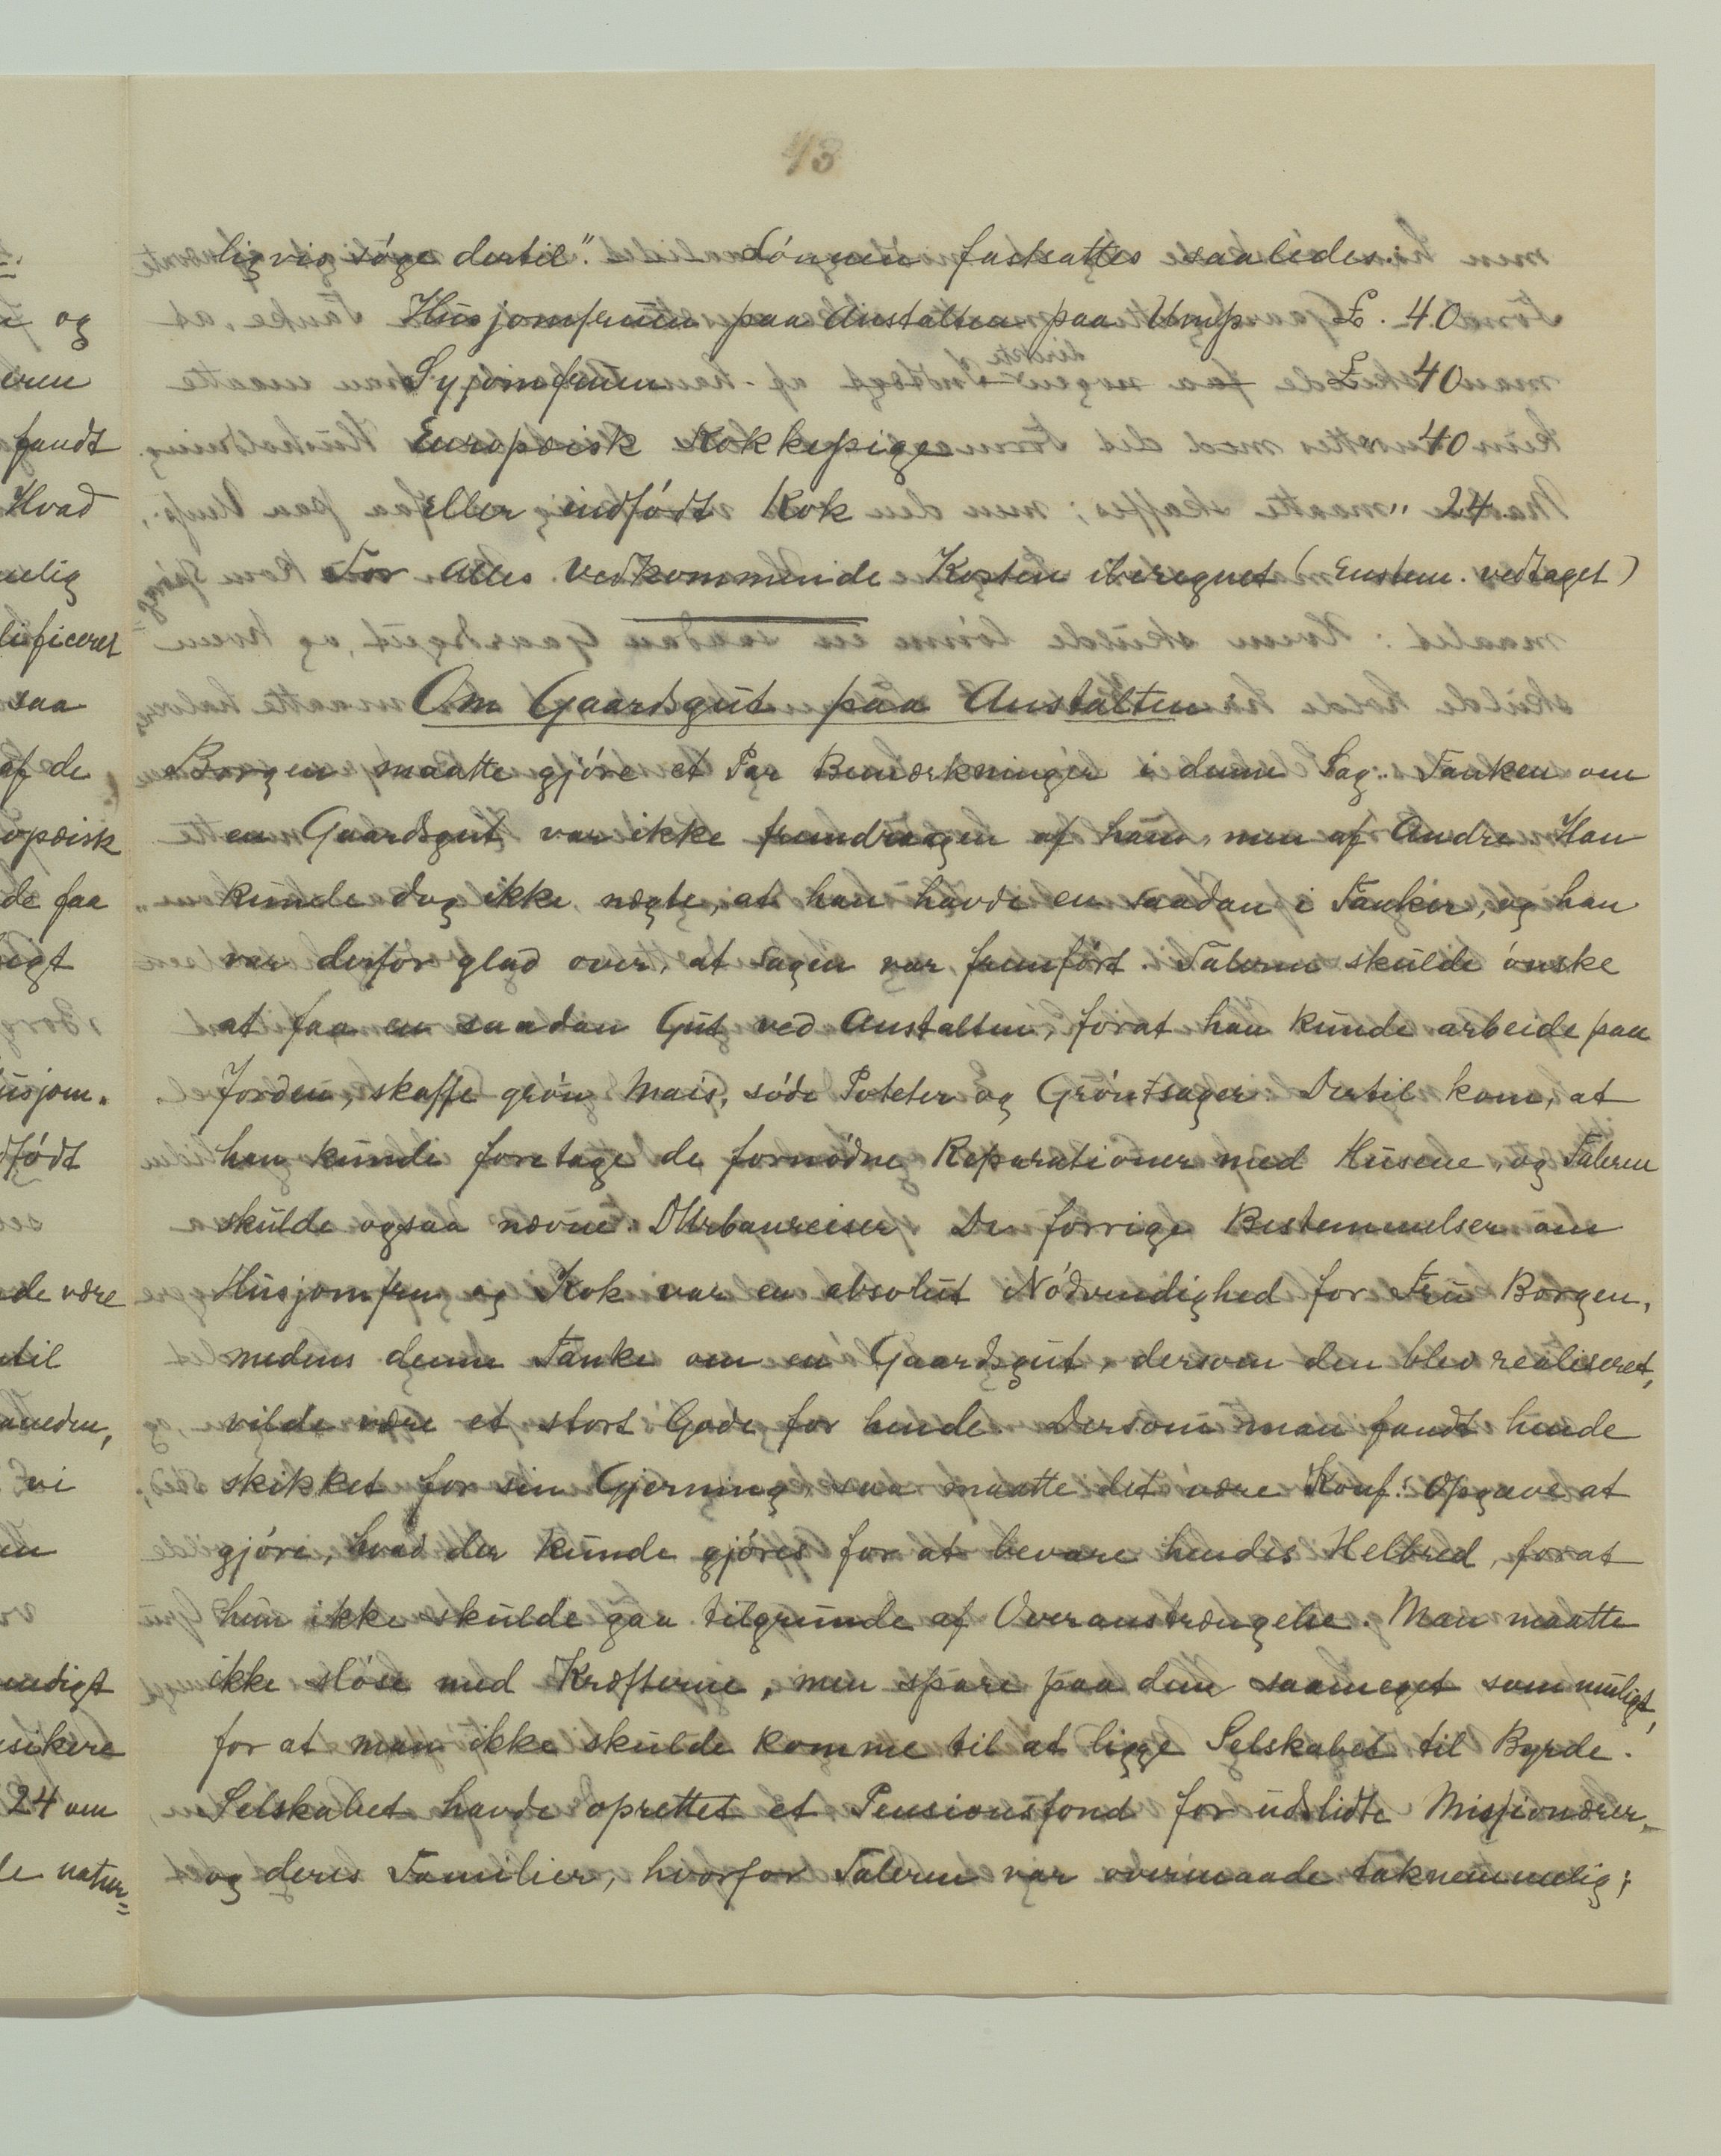 43
ligvis søge dertil". Lønnen fastsattes saaledes:
Husjomfruen paa Anstalten paa Ump. £. 40
Syjomfruen £ 40
Europæisk Kokkepige " 40
eller indfødt Kok " 24
For Alles Vedkommende Kosten iberegnet (Enstem. vedtaget)
Om Gaardsgut paa Anstalten:
Borgen maatte gjøre et Par Bemærkninger i denne Sag. Tanken om
en Gaardsgut var ikke fremdragen af ham, men af Andre. Han
kunde dog ikke nægte, at han havde en saadan i Tanker, og han
var derfor glad over, at Sagen var fremført. Taleren skulde ønske
at faa en saadan Gut ved Anstalten, forat han kunde arbeide paa
Jorden, skaffe grøn Mais, søde Poteter og Grøntsager. Dertil kom, at
han kunde foretage de fornødne Reparationer med Husene, og Taleren
skulde ogsaa nævne Durbanreiser. De forrige Bestemmelser om
Husjomfru og Kok var en absolut Nødvendighed for Fru Borgen,
medens denne Tanke om en Gaardsgut, dersom den blev realiseret,
vilde være et stort Gode for hende. Dersom man fandt hende
skikket for sin Gjerning, saa maatte det være Konf: Opgave at
gjøre, hvad der kunde gjøres for at bevare hendes Helbred, forat
hun ikke skulde gaa tilgrunde af Overanstrængelse. Man maatte
ikke sløse med Kræfterne, men spare paa dem saameget som muligt,
for at man ikke skulde komme til at ligge Selskabet til Byrde.
Selskabet havde oprettet et Pensionsfond for udslidte Missionærer
og deres Familier, hvorfor Taleren var overmaade taknemmelig;
og
fandt
Hvad
saa
af de
de faa
de være
vi
24 om